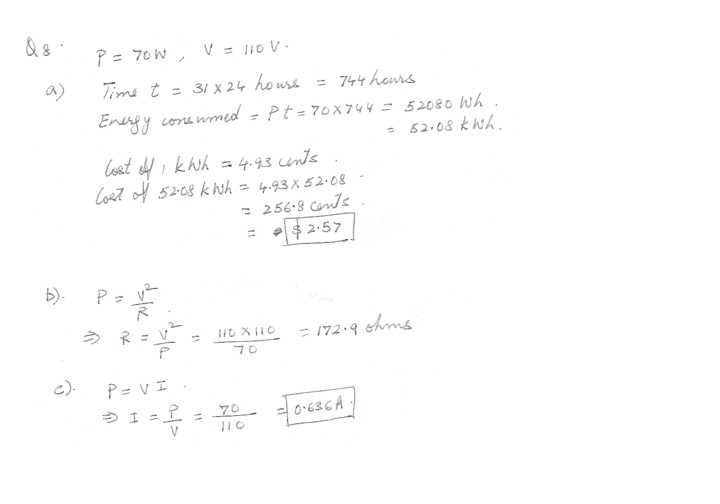 Q8.
P = 70W, V = 110 V.
a) Time t = 31 x 24 hours = 744 hours
Energy consumed = Pt = 70 x 744 = 52080 Wh.
= 52.08 kWh.
Cost of 1 kWh = 4.93 cents.
Cost of 52.08 kWh = 4.93 x 52.08
= 256.8 cents.
= $2.57
b). P = V²/R.
⇒ R = V²/P = 110 x 110/70 = 172.9 ohms
c). P = VI.
⇒ I = P/V = 70/110 = 0.636A.